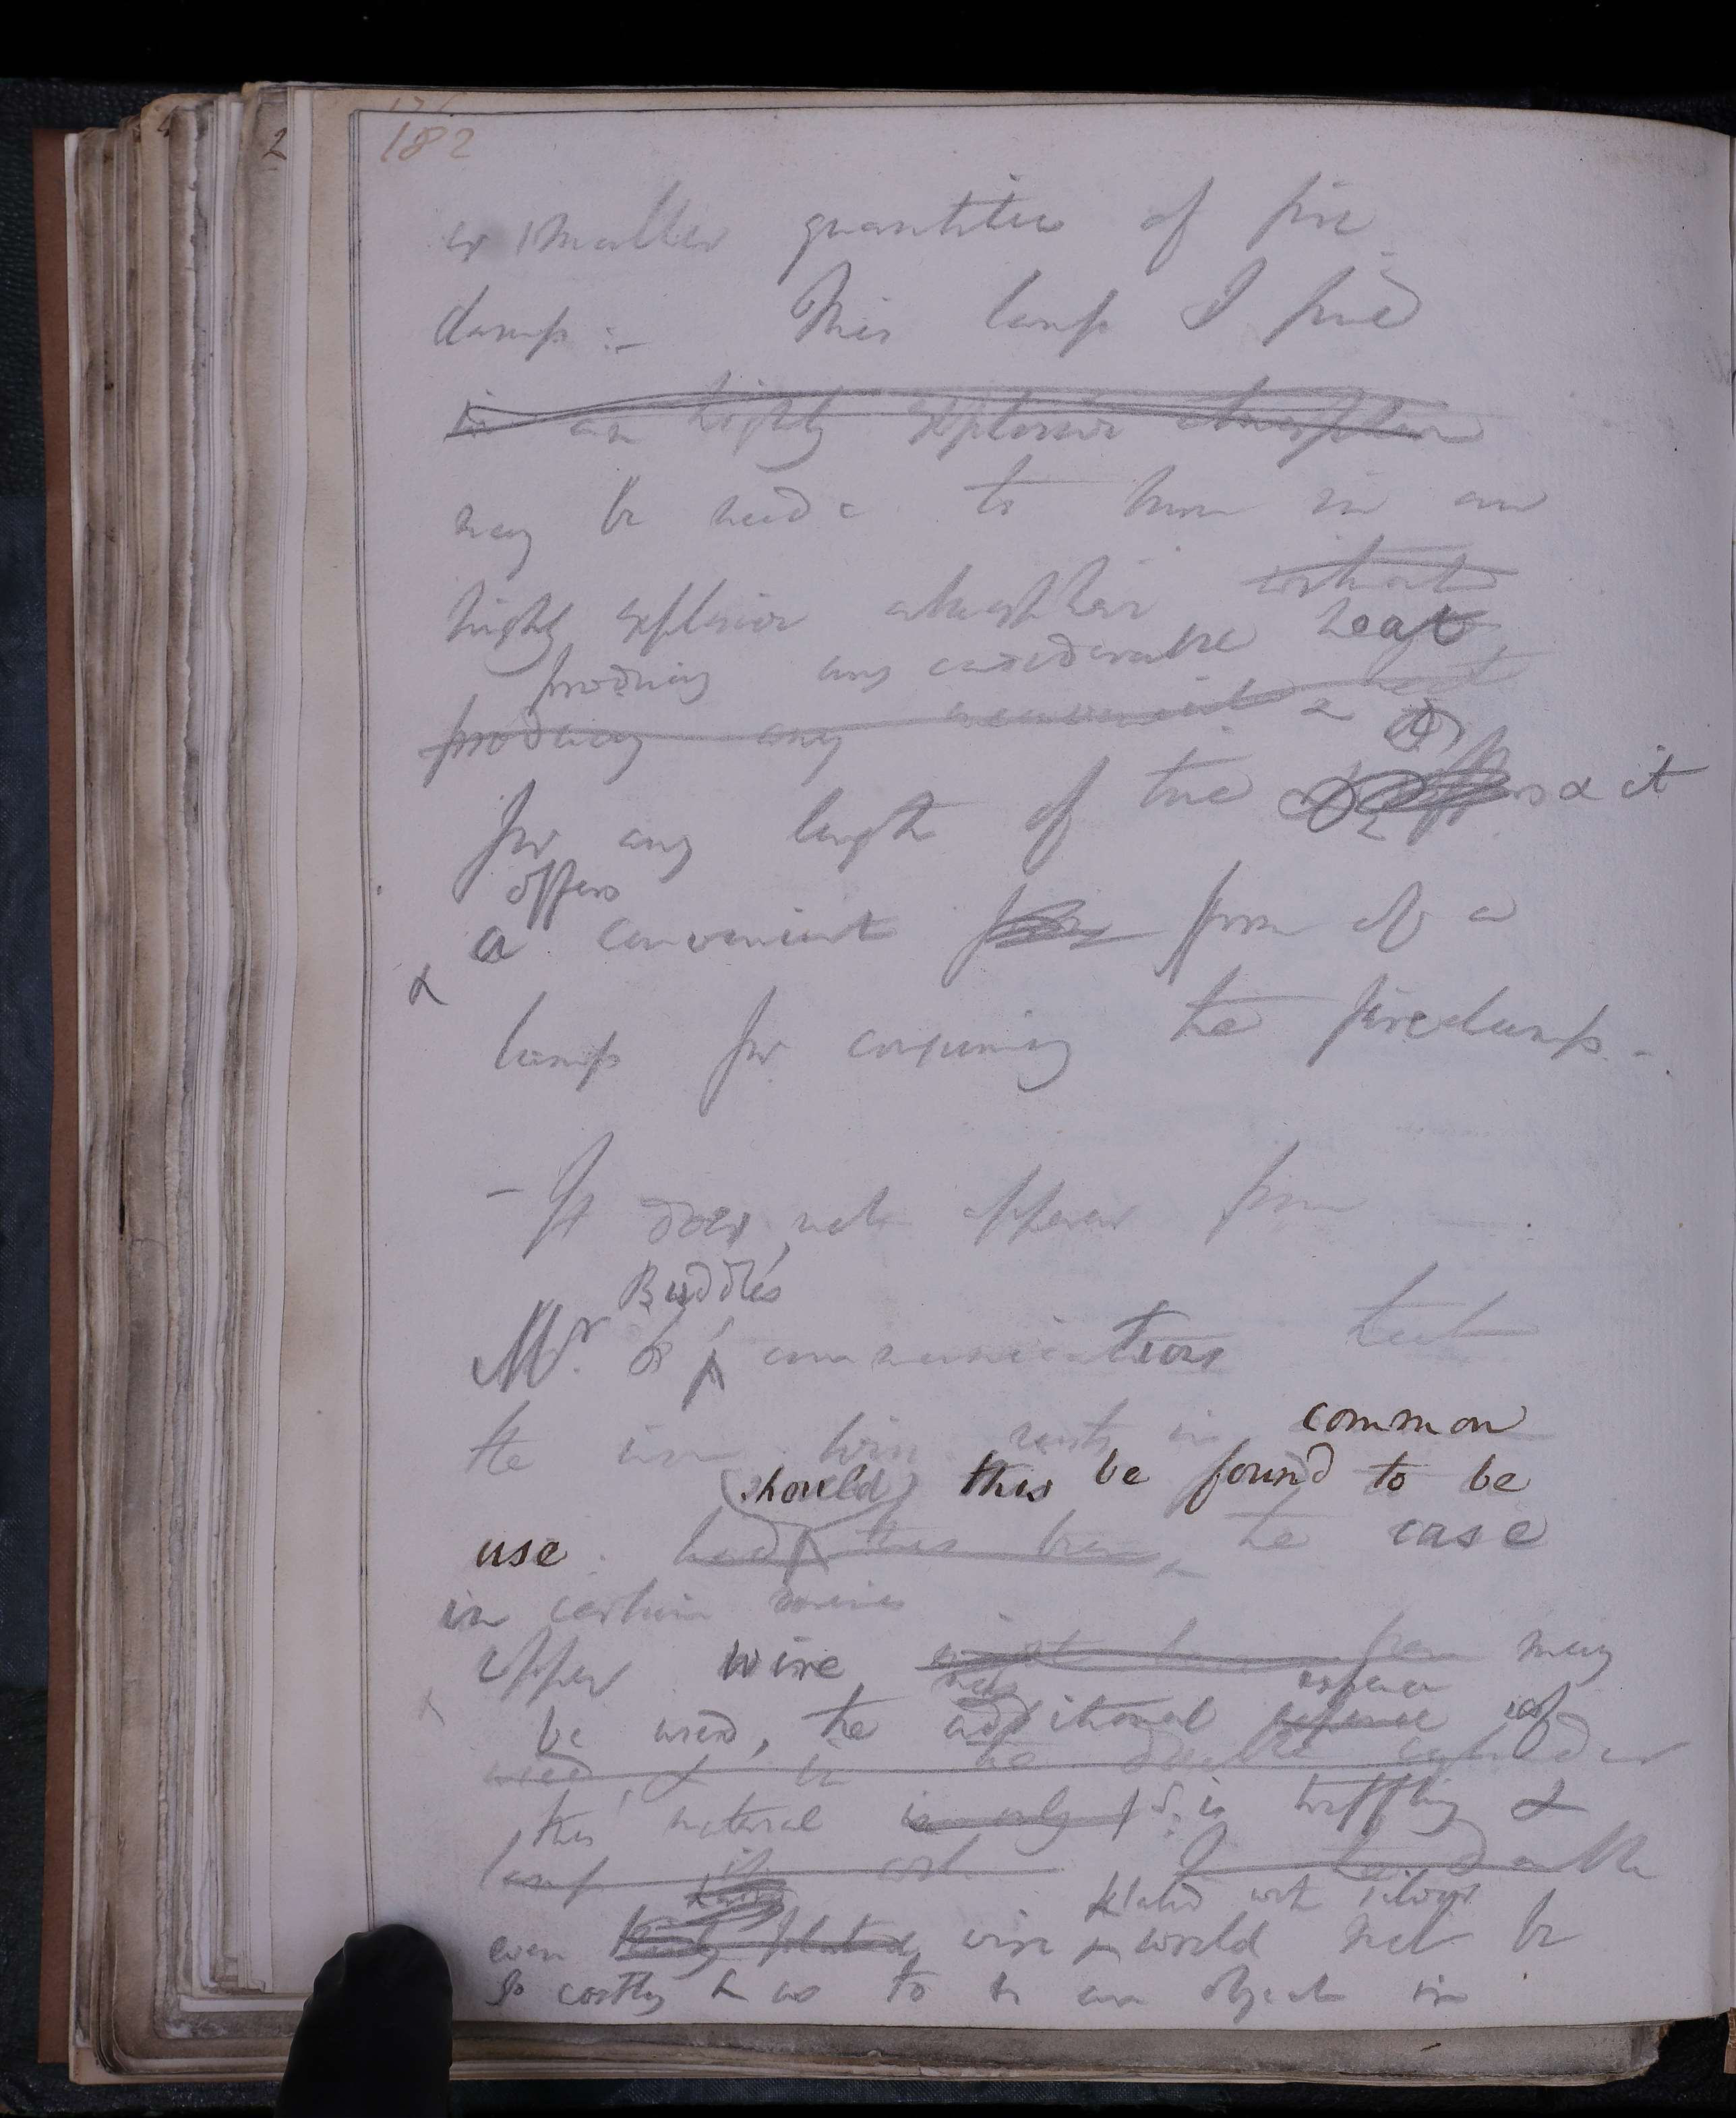 182
or smaller quantities of fire
damp :- This lamp I find
in an highly explosive atmosphere
may be made to burn in an
highly explosive atmosphere without
producing any considerable heat
producing any inconvenient heat
for any length of time & it
offers
a convenient form form of a
lamp for consuming the firedamp. -
- It does not appear from
Buddle's
Mr. B communications that
the iron wire rusts in common
(should) this be found to be
use. had this been the case
in certain mines
copper wire may
be used, the additional expence of
used, & in the double cylinder
this material is only is triffling &
lamp it cost double
plated with silver
even thinly plated wire would not be
so costly as to be an object in